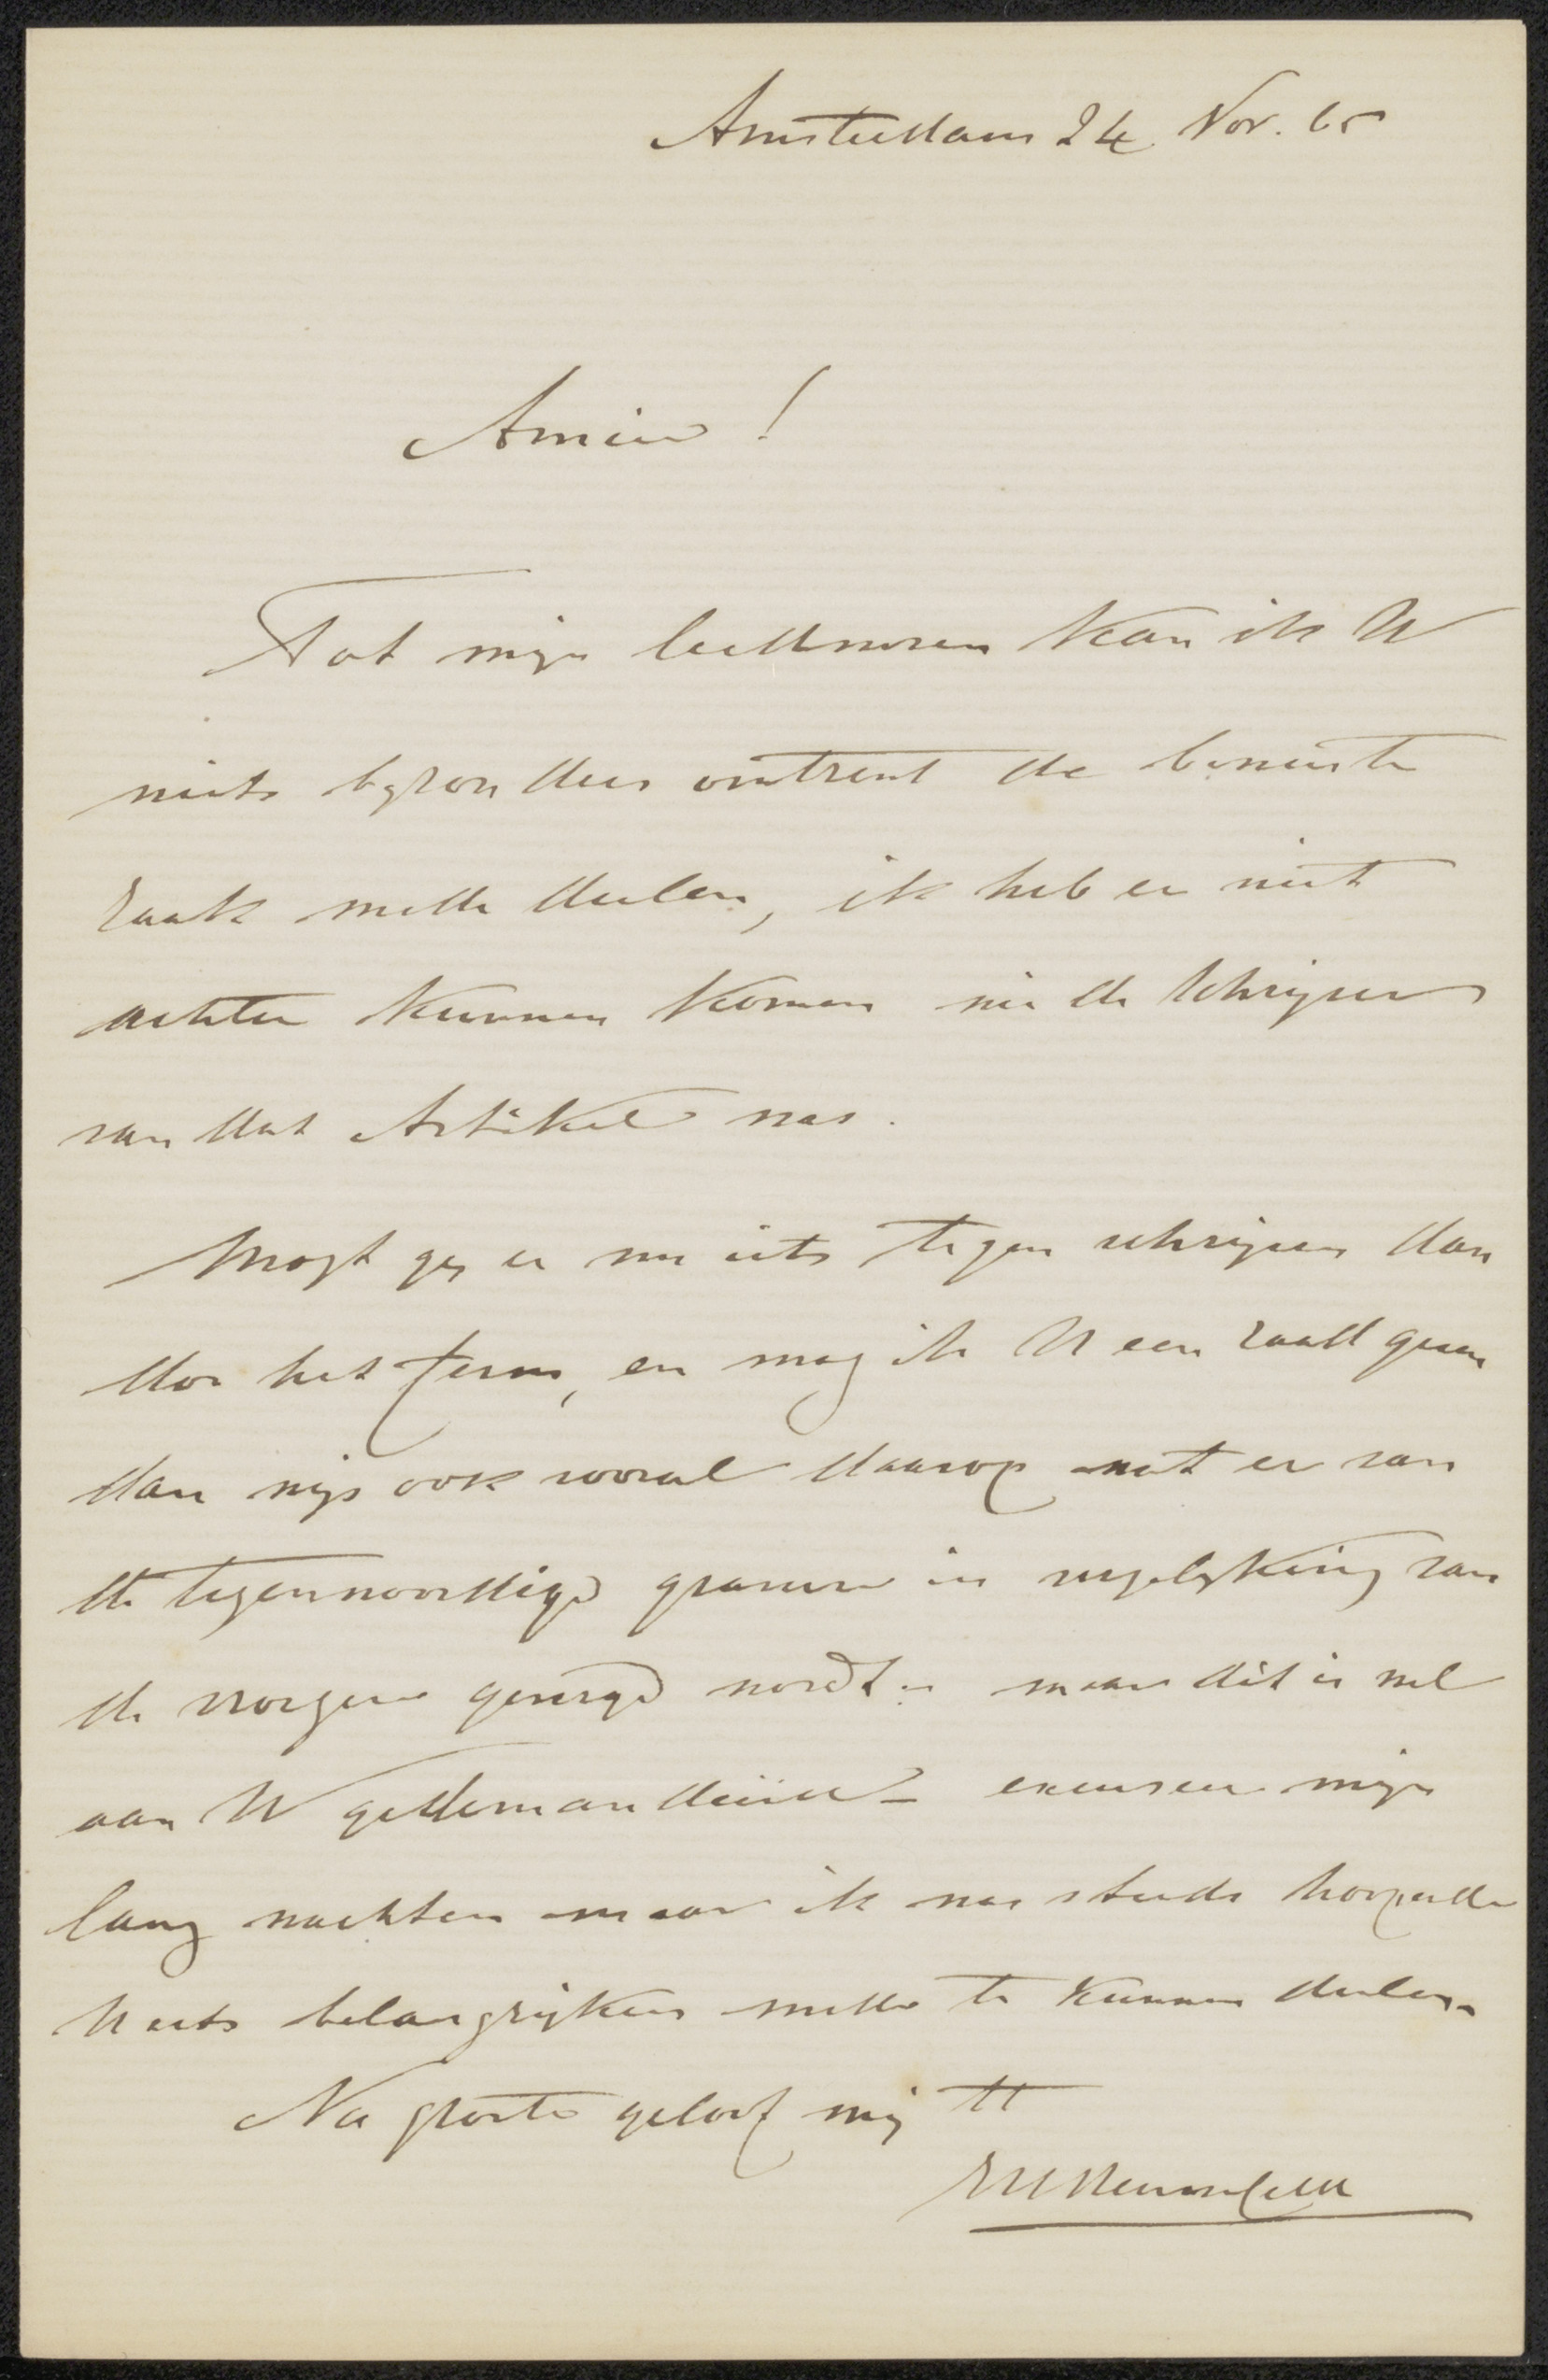 Amsterdam 24 Nov. 65
Amice!
Tot mijn leedwezen kan ik U
niets byzonders omtrent de bewuste
zaak mede deelen, ik heb er niet
achter kunnen komen wie de schrijver
van dat Artikel was.
Mogt gy er nu iets tegen schrijven dan
doe het ferm, en mag ik U een raad geven
dan wijs ook vooral daarop wat er van
de tegenwoordige gravure in vergelyking van
de vroegere gevergd wordt. maar dit is wel
aan U gedemandeerd – excuseer mijn
lang wachten maar ik was steeds hoopende
U iets belangrijkers mede te kunnen deelen.
Na groete geloof mij tt